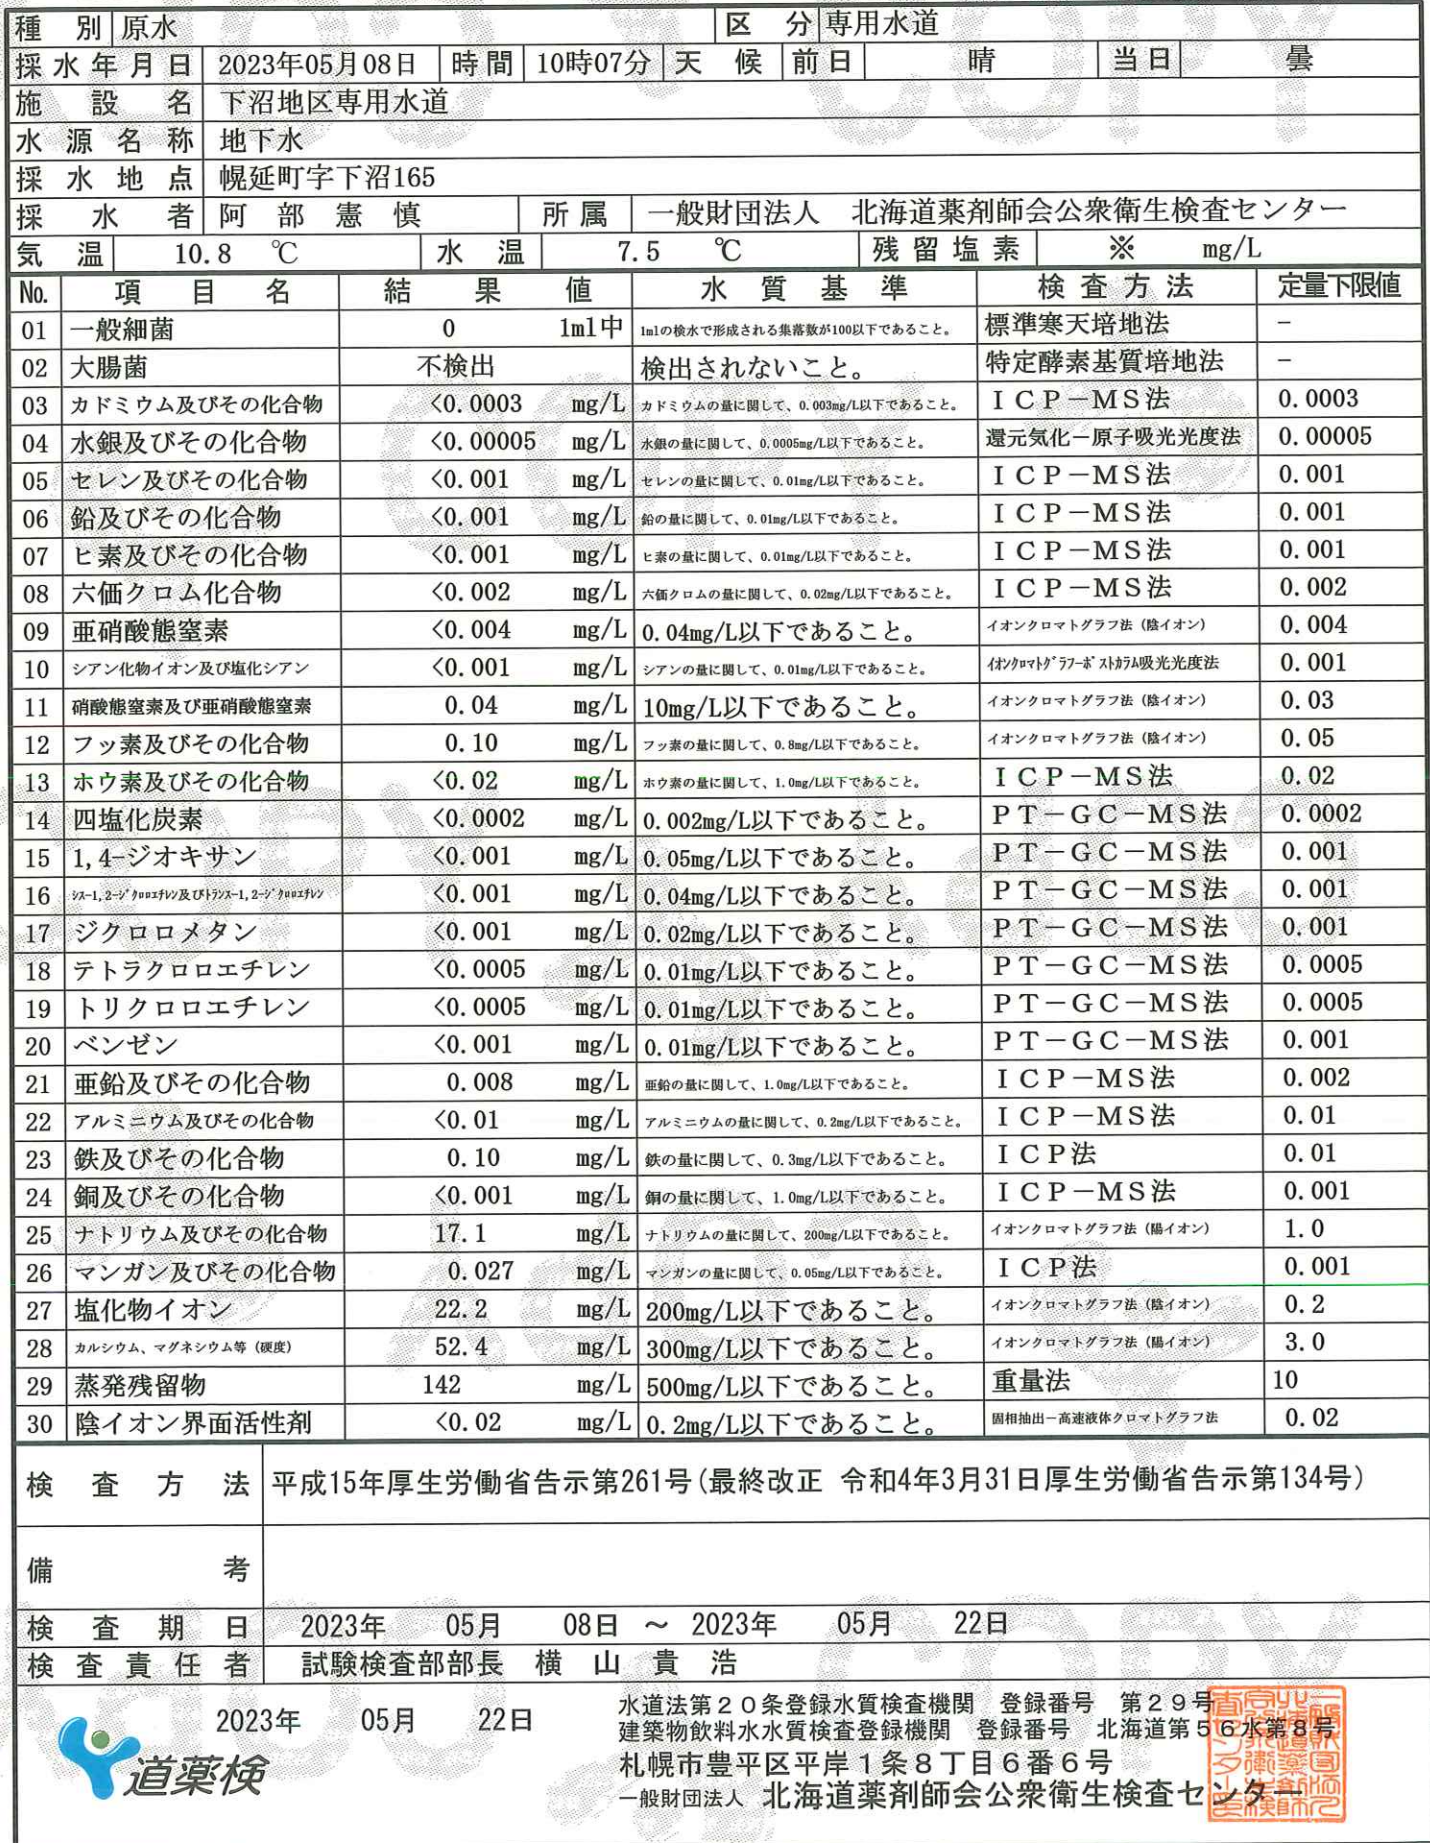 種別 原水 区分 専用水道
採水年月日 2023年05月08日 時間 10時07分 天候 前日 晴 当日 曇
施設名 下沼地区専用水道
水源名称 地下水
採水地点 幌延町字下沼165
採水者 阿部憲慎 所属 一般財団法人 北海道薬剤師会公衆衛生検査センター
気温 10.8 ℃ 水温 7.5 ℃ 残留塩素 ※ mg/L
No. 項目名 結果値 水質基準 検査方法 定量下限値
01 一般細菌 0 1ml中 1mlの検水で形成される集落数が100以下であること。 標準寒天培地法 －
02 大腸菌 不検出 検出されないこと。 特定酵素基質培地法 －
03 カドミウム及びその化合物 <0.0003 mg/L カドミウムの量に関して、0.003mg/L以下であること。 ＩＣＰ－ＭＳ法 0.0003
04 水銀及びその化合物 <0.00005 mg/L 水銀の量に関して、0.0005mg/L以下であること。 還元気化－原子吸光光度法 0.00005
05 セレン及びその化合物 <0.001 mg/L セレンの量に関して、0.01mg/L以下であること。 ＩＣＰ－ＭＳ法 0.001
06 鉛及びその化合物 <0.001 mg/L 鉛の量に関して、0.01mg/L以下であること。 ＩＣＰ－ＭＳ法 0.001
07 ヒ素及びその化合物 <0.001 mg/L ヒ素の量に関して、0.01mg/L以下であること。 ＩＣＰ－ＭＳ法 0.001
08 六価クロム化合物 <0.002 mg/L 六価クロムの量に関して、0.02mg/L以下であること。 ＩＣＰ－ＭＳ法 0.002
09 亜硝酸態窒素 <0.004 mg/L 0.04mg/L以下であること。 イオンクロマトグラフ法（陰イオン） 0.004
10 シアン化物イオン及び塩化シアン <0.001 mg/L シアンの量に関して、0.01mg/L以下であること。 ｲｵﾝｸﾛﾏﾄｸﾞﾗﾌｰﾎﾟｽﾄｶﾗﾑ吸光光度法 0.001
11 硝酸態窒素及び亜硝酸態窒素 0.04 mg/L 10mg/L以下であること。 イオンクロマトグラフ法（陰イオン） 0.03
12 フッ素及びその化合物 0.10 mg/L フッ素の量に関して、0.8mg/L以下であること。 イオンクロマトグラフ法（陰イオン） 0.05
13 ホウ素及びその化合物 <0.02 mg/L ホウ素の量に関して、1.0mg/L以下であること。 ＩＣＰ－ＭＳ法 0.02
14 四塩化炭素 <0.0002 mg/L 0.002mg/L以下であること。 ＰＴ－ＧＣ－ＭＳ法 0.0002
15 1,4-ジオキサン <0.001 mg/L 0.05mg/L以下であること。 ＰＴ－ＧＣ－ＭＳ法 0.001
16 ｼｽ-1,2-ｼﾞｸﾛﾛｴﾁﾚﾝ及びﾄﾗﾝｽ-1,2-ｼﾞｸﾛﾛｴﾁﾚﾝ <0.001 mg/L 0.04mg/L以下であること。 ＰＴ－ＧＣ－ＭＳ法 0.001
17 ジクロロメタン <0.001 mg/L 0.02mg/L以下であること。 ＰＴ－ＧＣ－ＭＳ法 0.001
18 テトラクロロエチレン <0.0005 mg/L 0.01mg/L以下であること。 ＰＴ－ＧＣ－ＭＳ法 0.0005
19 トリクロロエチレン <0.0005 mg/L 0.01mg/L以下であること。 ＰＴ－ＧＣ－ＭＳ法 0.0005
20 ベンゼン <0.001 mg/L 0.01mg/L以下であること。 ＰＴ－ＧＣ－ＭＳ法 0.001
21 亜鉛及びその化合物 0.008 mg/L 亜鉛の量に関して、1.0mg/L以下であること。 ＩＣＰ－ＭＳ法 0.002
22 アルミニウム及びその化合物 <0.01 mg/L アルミニウムの量に関して、0.2mg/L以下であること。 ＩＣＰ－ＭＳ法 0.01
23 鉄及びその化合物 0.10 mg/L 鉄の量に関して、0.3mg/L以下であること。 ＩＣＰ法 0.01
24 銅及びその化合物 <0.001 mg/L 銅の量に関して、1.0mg/L以下であること。 ＩＣＰ－ＭＳ法 0.001
25 ナトリウム及びその化合物 17.1 mg/L ナトリウムの量に関して、200mg/L以下であること。 イオンクロマトグラフ法（陽イオン） 1.0
26 マンガン及びその化合物 0.027 mg/L マンガンの量に関して、0.05mg/L以下であること。 ＩＣＰ法 0.001
27 塩化物イオン 22.2 mg/L 200mg/L以下であること。 イオンクロマトグラフ法（陰イオン） 0.2
28 カルシウム、マグネシウム等（硬度） 52.4 mg/L 300mg/L以下であること。 イオンクロマトグラフ法（陽イオン） 3.0
29 蒸発残留物 142 mg/L 500mg/L以下であること。 重量法 10
30 陰イオン界面活性剤 <0.02 mg/L 0.2mg/L以下であること。 固相抽出－高速液体クロマトグラフ法 0.02
検査方法 平成15年厚生労働省告示第261号(最終改正 令和4年3月31日厚生労働省告示第134号)
備考
検査期日 2023年 05月 08日 ～ 2023年 05月 22日
検査責任者 試験検査部部長 横山貴浩
2023年 05月 22日
道薬検
水道法第２０条登録水質検査機関 登録番号 第２９号
建築物飲料水水質検査登録機関 登録番号 北海道第５６水第８号
札幌市豊平区平岸１条８丁目６番６号
一般財団法人 北海道薬剤師会公衆衛生検査センター